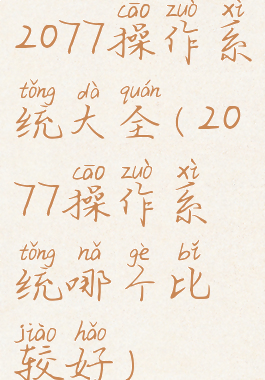 cāo zuò xì
2077操作系
tǒng dà quán
统大全(20
cāo zuò xì
77操作系
tǒng nǎ gè bǐ
统哪个比
jiào hǎo
较好)